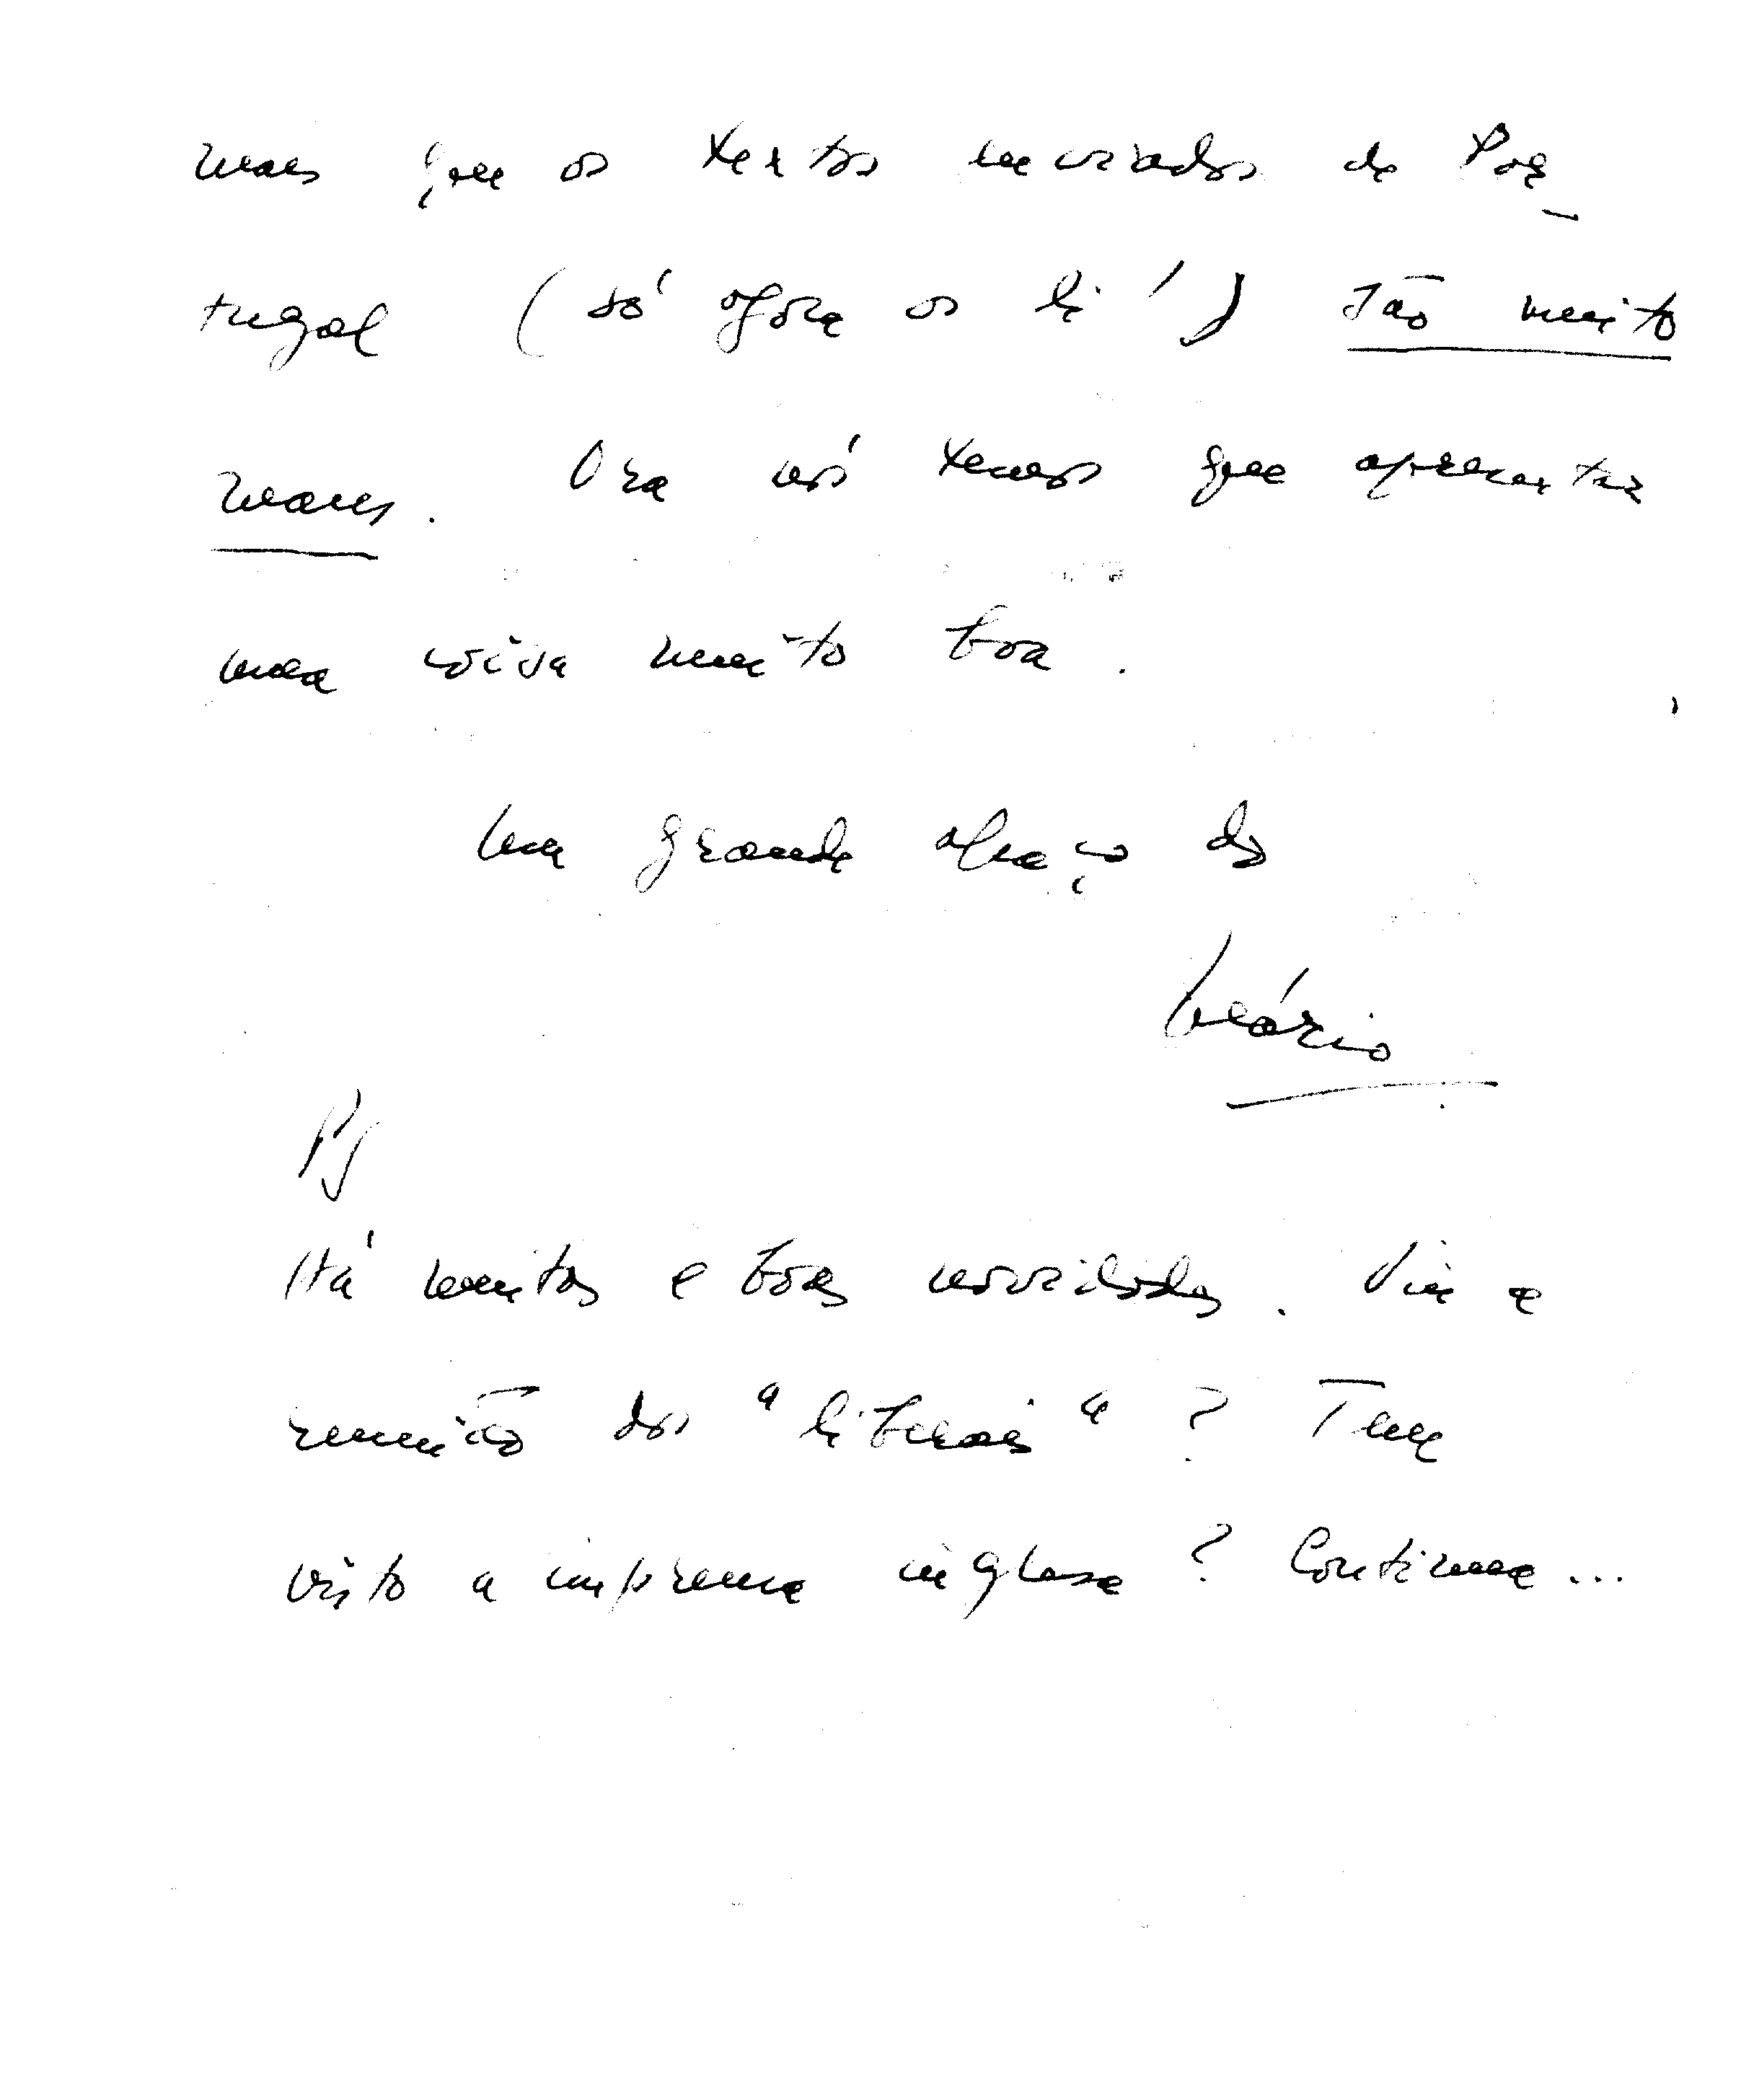 mas que os textos enviados de Por-
tugal (só agora os li!) são muito
maus. Ora nós temos que apresentar
uma coisa muito boa.
Um grande abraço do
Mário
PS
Há muitas e boas novidades. Viu a
reunião dos "liberais"? Tem
visto a imprensa inglesa? Continua...